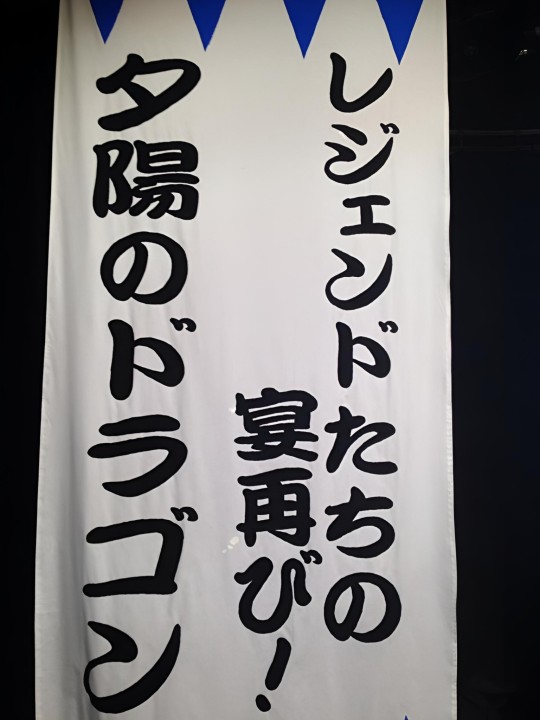 レジェンドたちの
宴再び!
夕陽のドラゴン